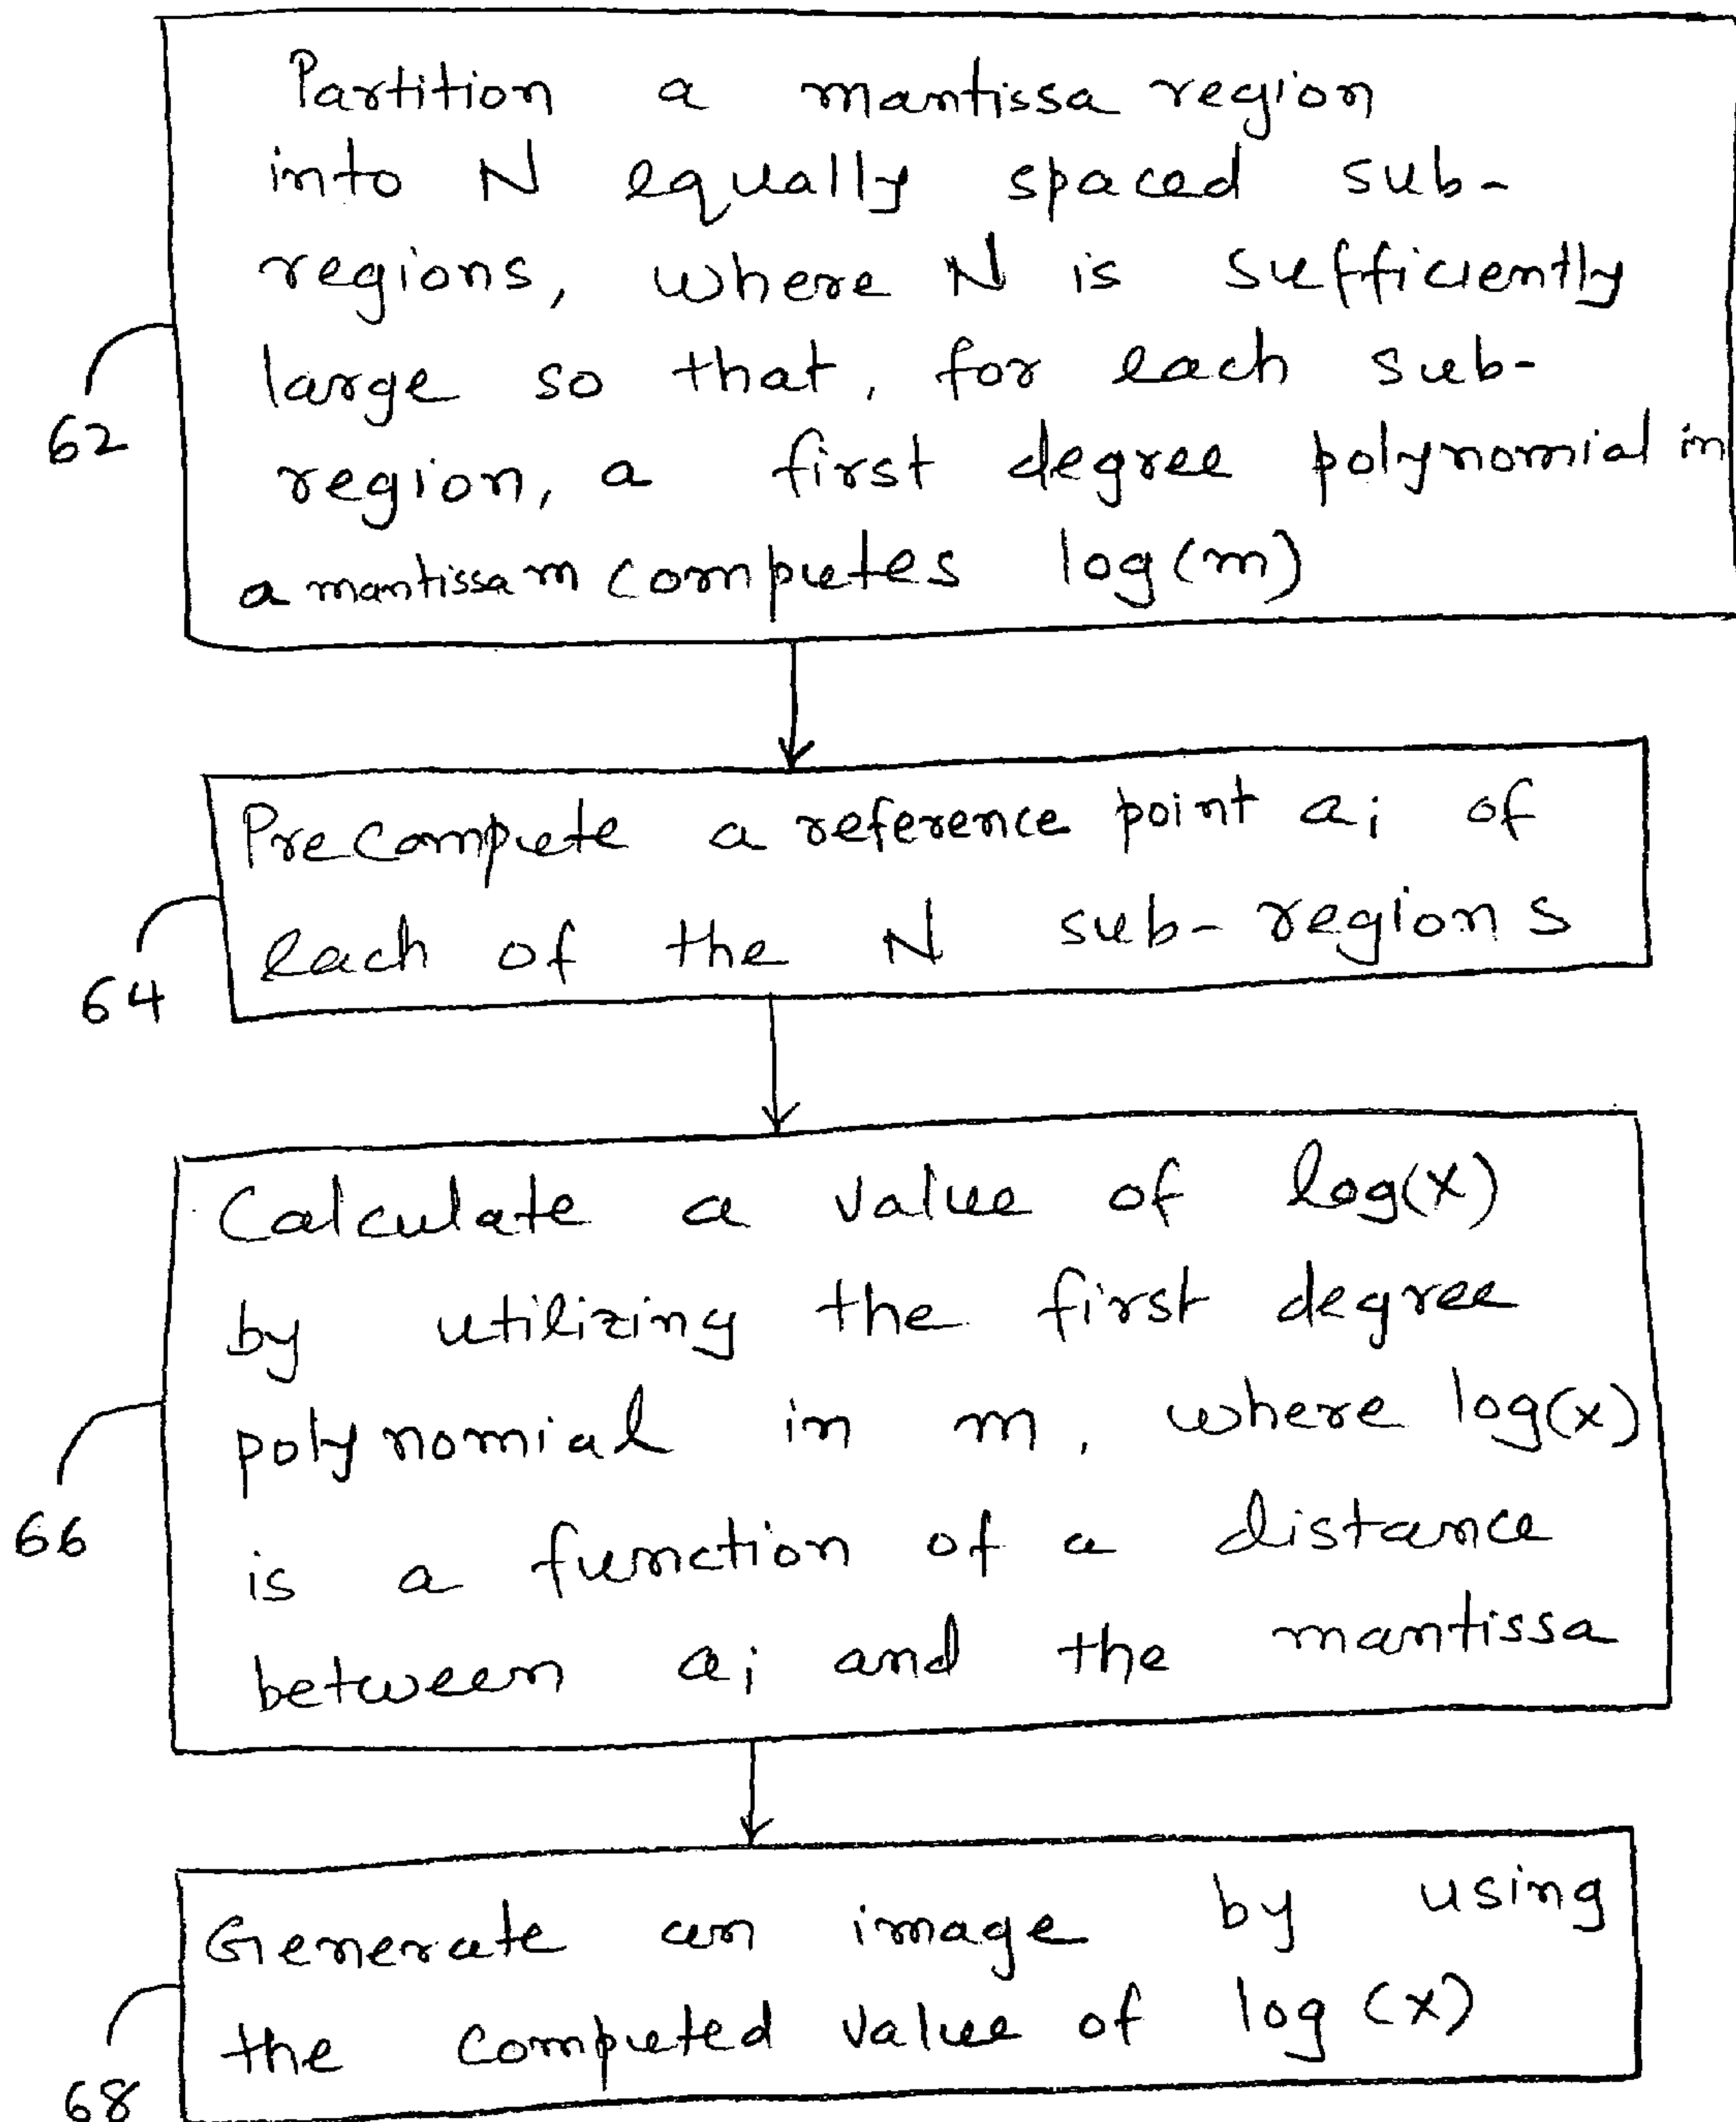 Partition a mantissa region
into N equally spaced sub-
regions, where N is sufficiently
large so that, for each sub-
region, a first degree polynomial in
a mantissa m computes log(m)
62
Precompute a reference point ai of
each of the N sub-regions
64
Calculate a value of log(x)
by utilizing the first degree
polynomial in m, where log(x)
is a function of a distance
between ai and the mantissa
66
Generate an image by using
the computed value of log(x)
68